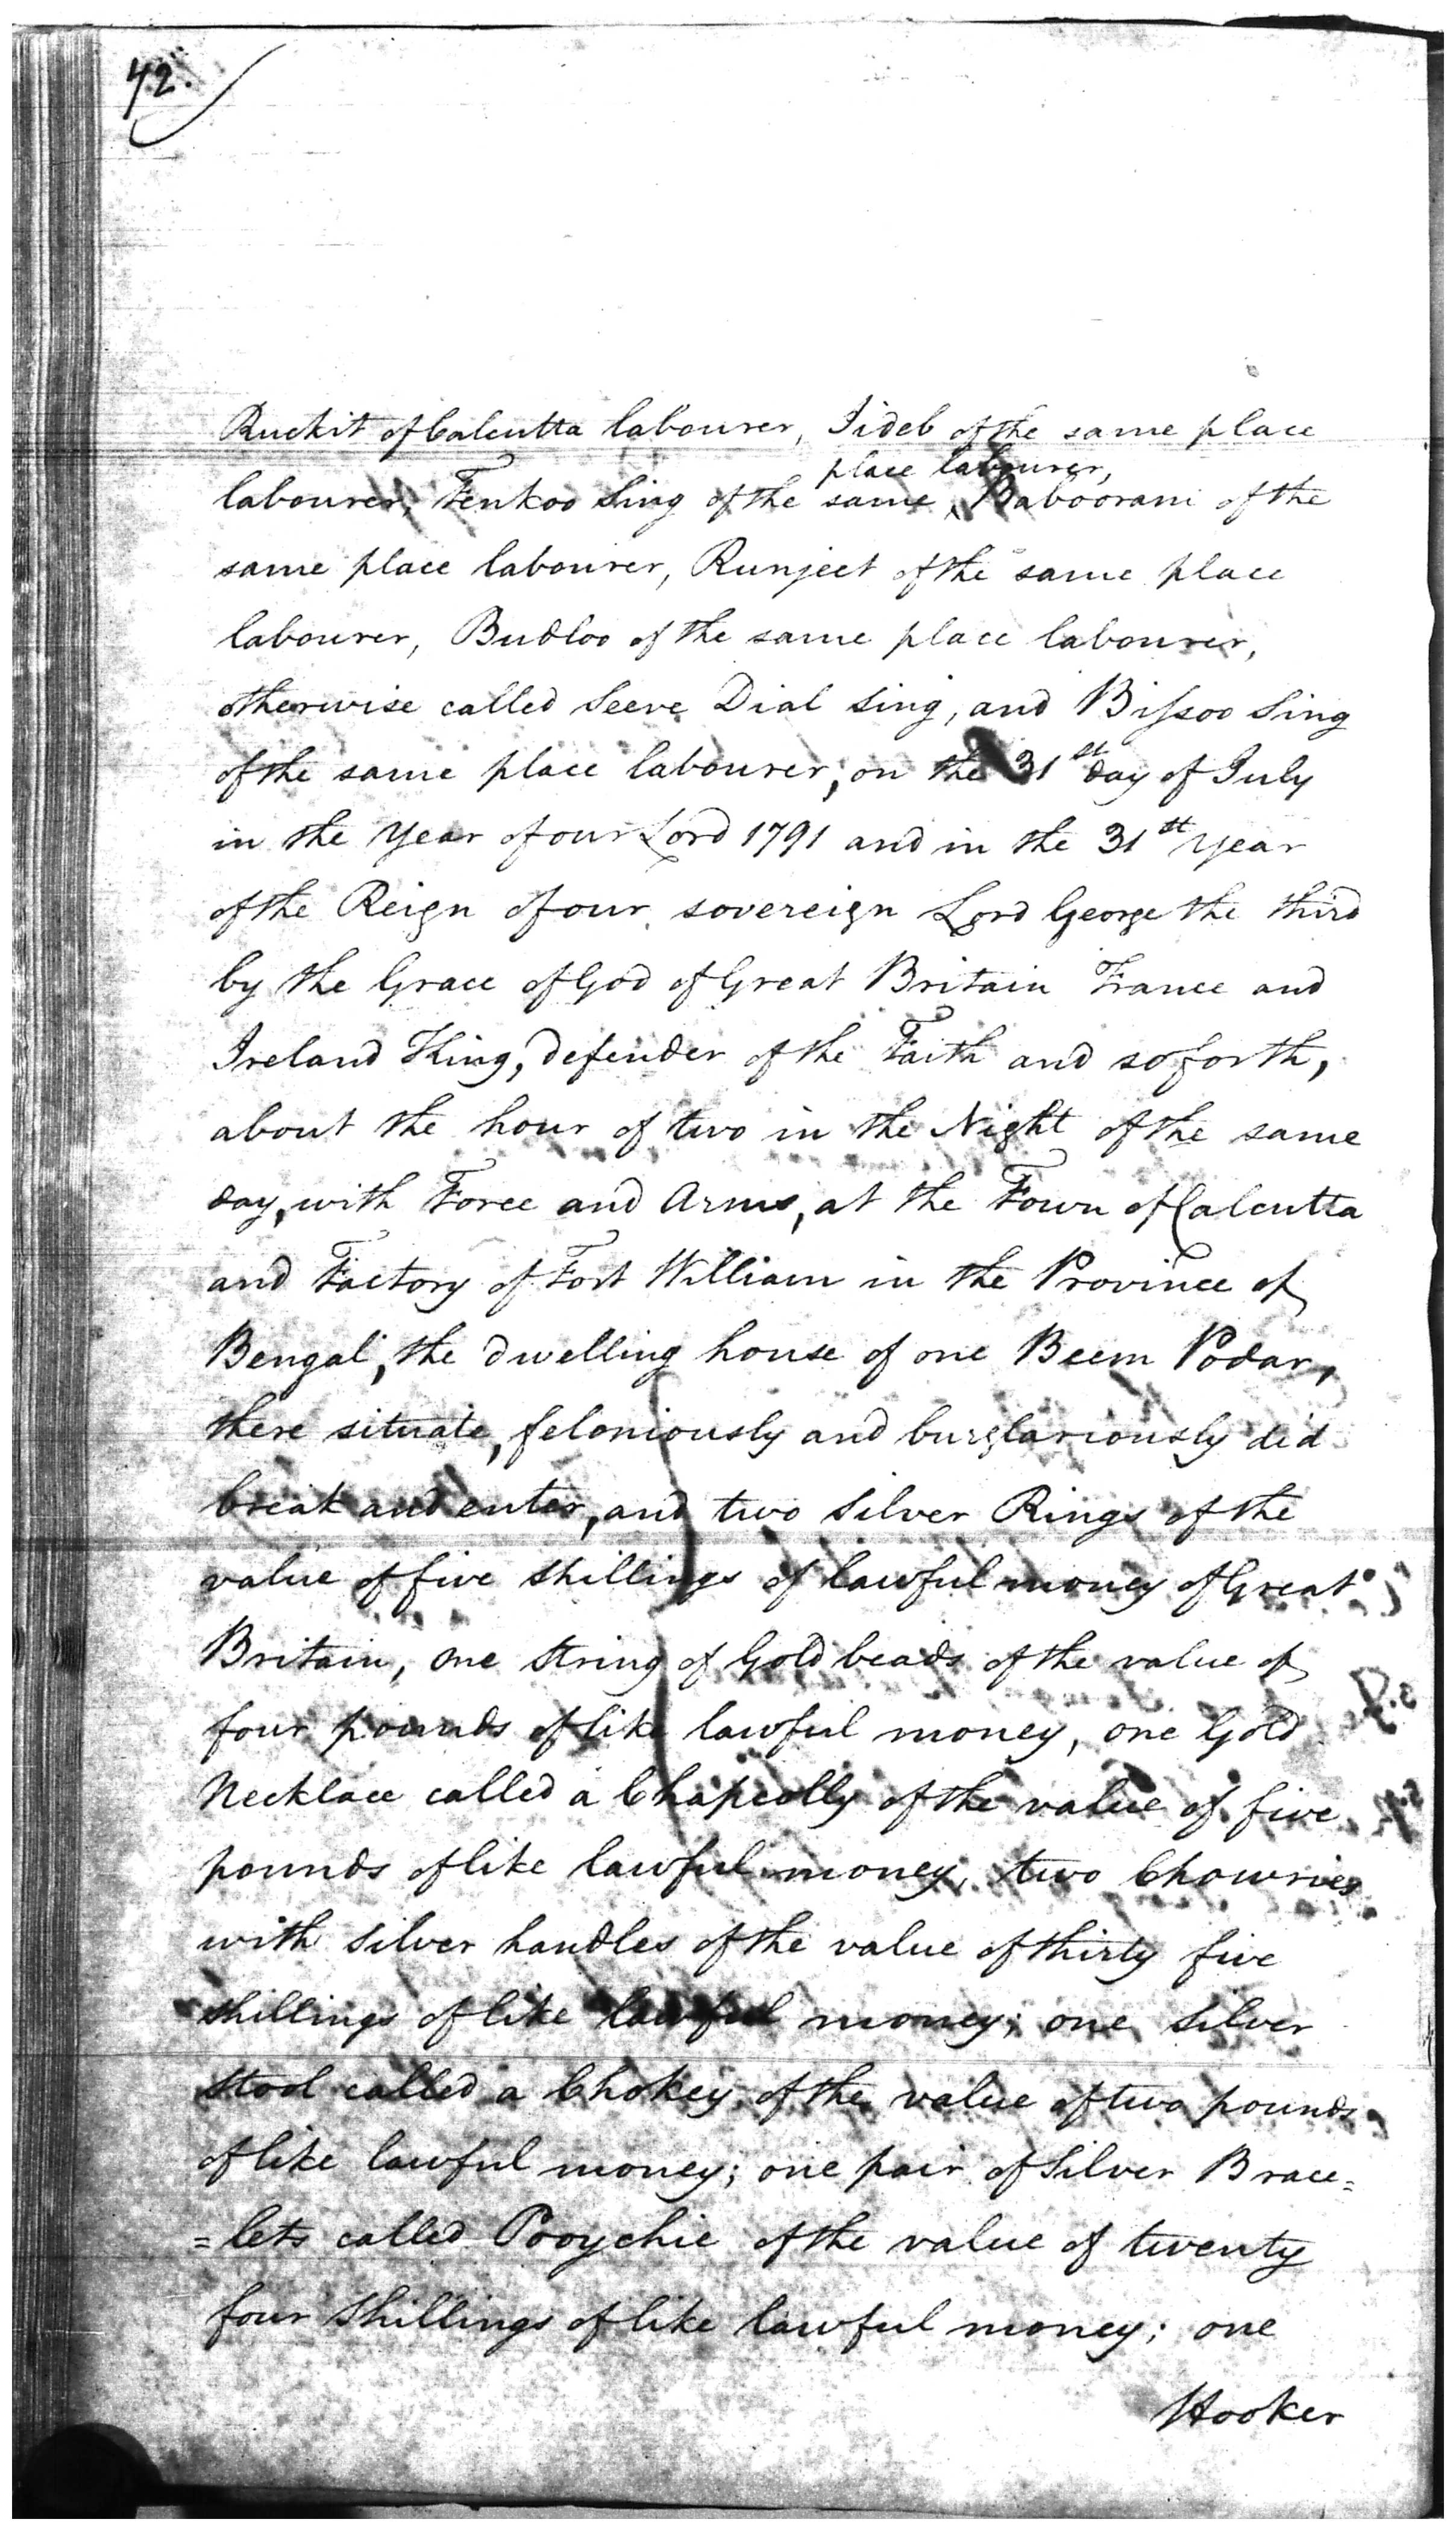 42.
Ruckit of Calcutta labourer, Jideb of the same place
place labourer,
labourer, Tenkoo Sing of the same, Babooram of the
same place labourer, Runjeet of the same place
labourer, Budloo of the same place labourer,
otherwise called Seeve Dial Sing, and Bissoo Sing
of the same place labourer, on the 31st day of July
in the Year of our Lord 1791 and in the 31st Year
of the Reign of our sovereign Lord George the third
by the Grace of God of Great Britain France and
Ireland King, defender of the Faith and so forth,
about the hour of two in the Night of the same
day, with Force and Arms, at the Town of Calcutta
and Factory of Fort William in the Province of
Bengal, the dwelling house of one Beem Podar,
there situate, feloniously and burglariously did
break and enter, and two Silver Rings of the
value of five Shillings of lawful money of Great
Britain, one String of Gold beads of the value of
four pounds of like lawful money, one Gold
Necklace called a Chapcolly of the value of five
pounds of like lawful money, two Chowries
with Silver handles of the value of thirty five
Shillings of like lawful money; one Silver
Stool called a Chokey of the value of two pounds
of like lawful money; one pair of Silver Brace=
=lets called Pooychie of the value of twenty
four Shillings of like lawful money; one
Hooker